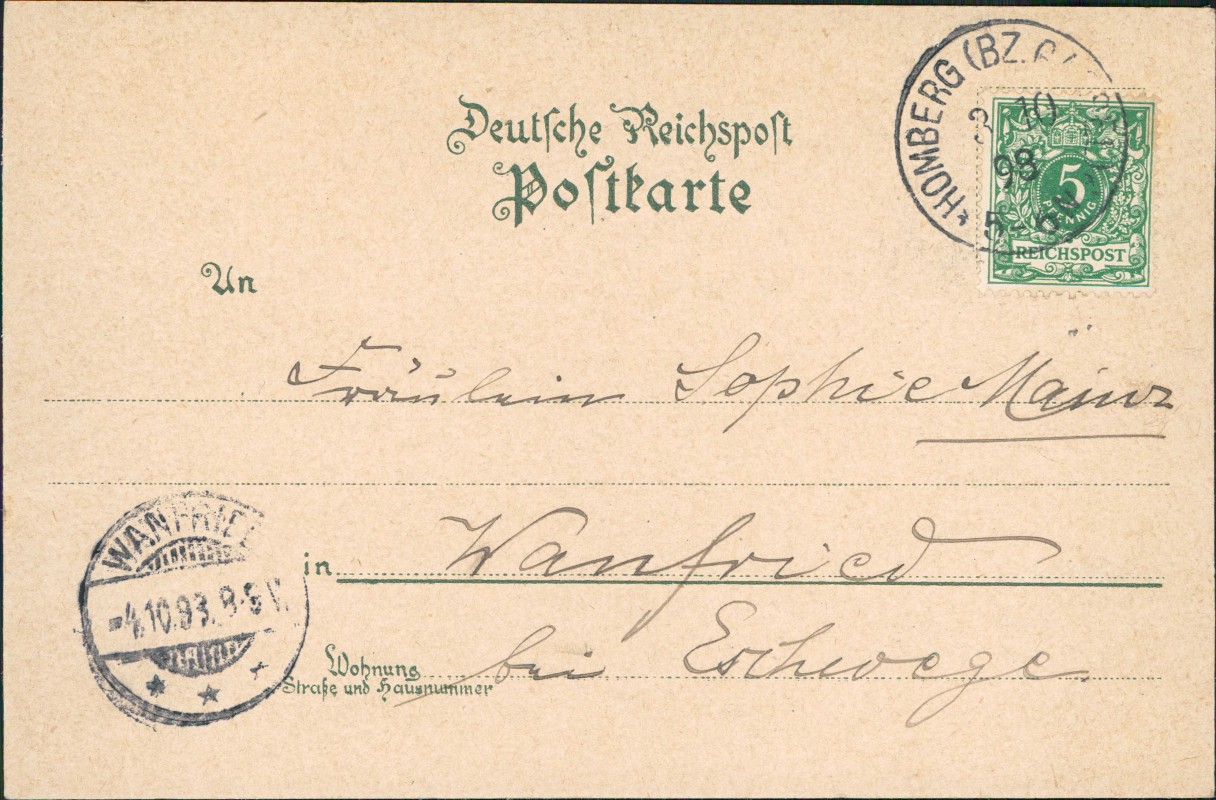 Deutsche Reichspost
Postkarte
*HOMBERG (BZ.
3 10
98
5-6N
5
PFENNIG
REICHSPOST
An
Fräulein Sophie
in Wanfried
WANFRIED
-4.10.93. 8-9 V.
Wohnung
Straße und Hausnummer
bei Eschwege.